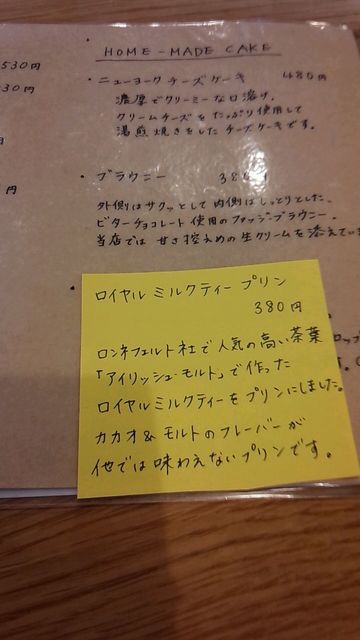 HOME-MADE CAKE
530円
30円
円
・ニューヨークチーズケーキ 480円
濃厚でクリーミーな口溶け。
クリームチーズをたっぷり使用して
湯煎焼きをしたチーズケーキです。
・ブラウニー 380円
外側はサクッとして内側はしっとりとした、
ビターチョコレート使用のファッジブラウニー。
当店では甘さ控えめの生クリームを添えてい
ロイヤルミルクティープリン
380円
ロンネフェルト社で人気の高い茶葉
「アイリッシュ・モルト」で作った
ロイヤルミルクティーをプリンにしました。
カカオ&モルトのフレーバーが
他では味わえないプリンです。
ロップ